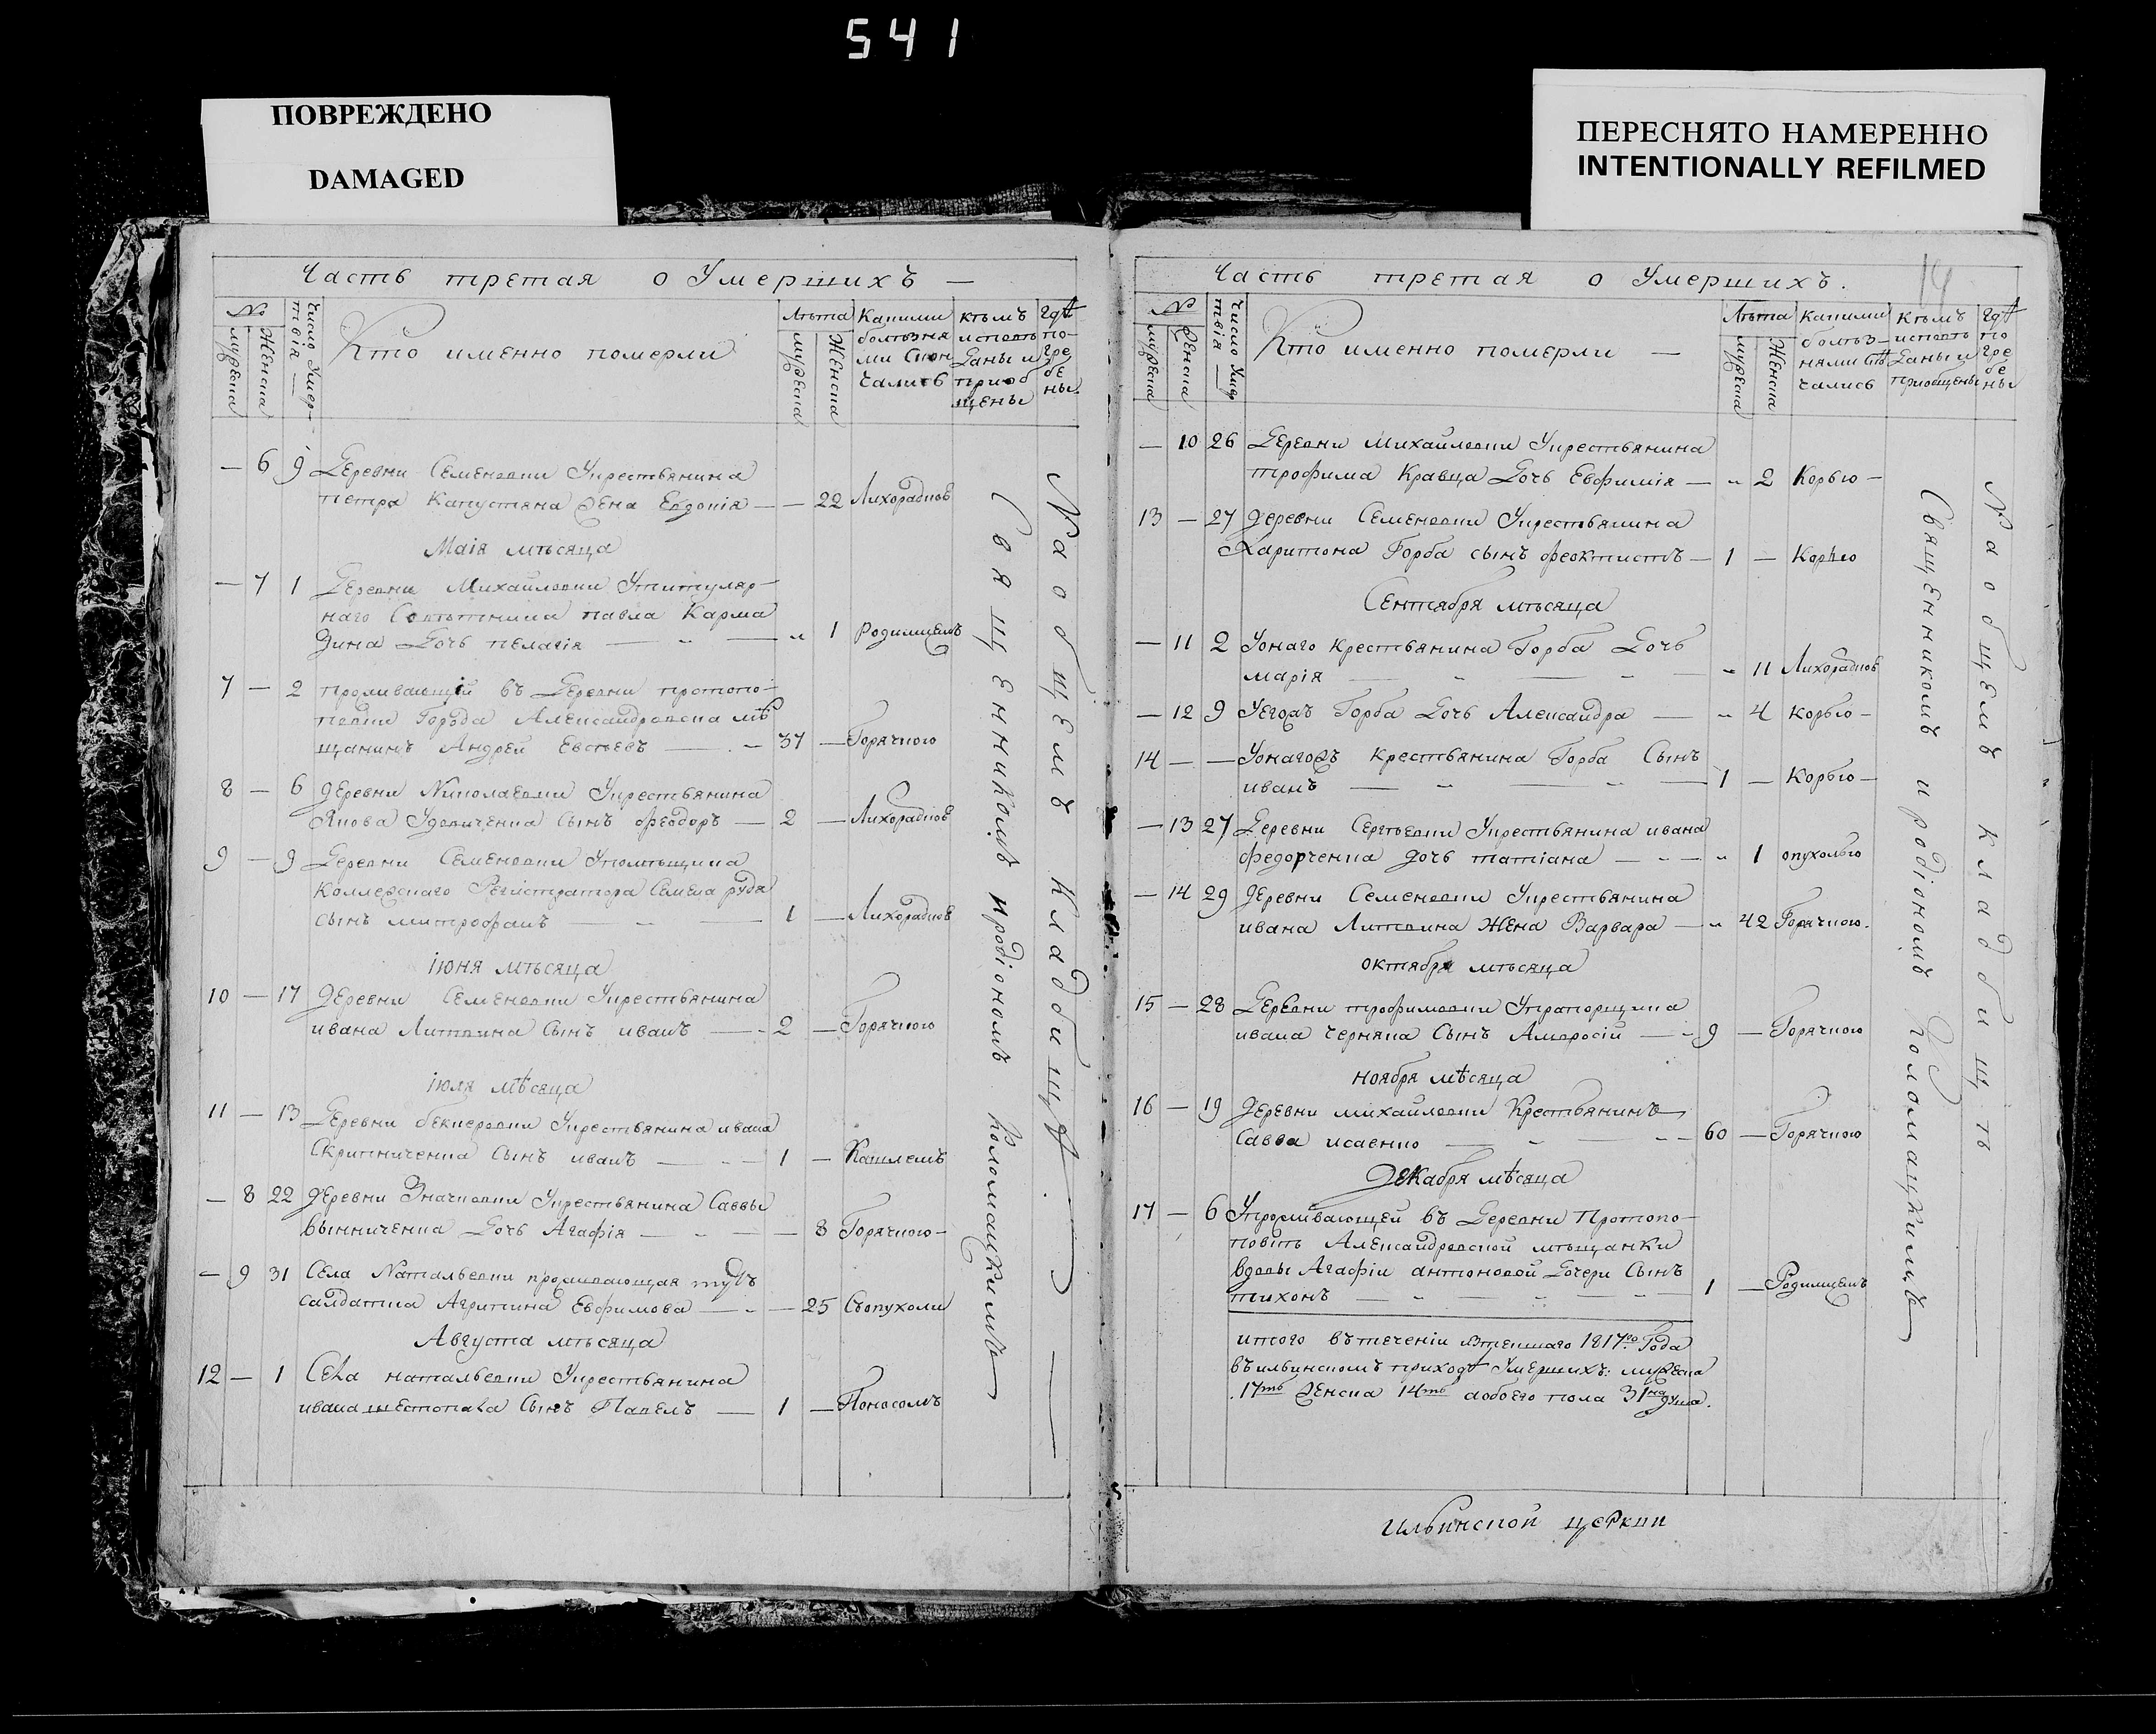 541
ПОВРЕЖДЕНО
DAMAGED
ПЕРЕСНЯТО НАМЕРЕННО
INTENTIONALLY REFILMED
Часть третая о Умершихъ —
№
мужеска
Женска
Число Умер-
твія —
Кто именно померли
Лѣта
мужеска
Женска
Какими
болѣзня
ми скон
чались
кѣмъ
исповѣ
даны и
приоб
щены
гдѣ
по-
гре
бе
ны
— 6 9 Деревни Семеновки Укрестьянина
петра Капустяна Жена Евдокія — — 22 Лихорадков
Маія мѣсяца
— 7 1 Деревни Михайловки Утитуляр-
наго Совѣтника павла Карма
зина Дочь пелагія — „ — „ 1 родимцемъ
7 — 2 проживающій въ Деревни протопо-
повки Города Александровска мѣ
щанинъ Андрей Евсѣевъ — 37 — Горячкою
8 — 6 деревни Николаевки Укрестьянина
Якова Удовиченка Сынъ феодоръ — 2 — Лихорадков
9 — 9 Деревни Семеновки Упомѣщика
Коллежскаго Регистратора Семена руда
сынъ митрофанъ — „ — 1 — Лихорадков
іюня мѣсяца
10 — 17 Деревни Семеновки Укрестьянина
ивана Литвина Сынъ иванъ — 2 — Горячкою
іюля мѣсяца
11 — 13 Деревни бекиеровки Укрестьянина ивана
Скрипниченка Сынъ иванъ — 1 — Кашлемъ
— 8 22 деревни Значковки Укрестьянина Саввы
Винниченка Дочь Агафія — „ — 8 Горячкою —
— 9 31 Села Натальевки проживающая тутъ
салдатка Агрипина Евфимова — — 25 Съопухоли
Августа мѣсяца
12 — 1 Села натальевки Укрестьянина
ивана шестопала Сынъ Павелъ — 1 — Поносомъ
Священникомъ иродіономъ Коломацкимъ
Наобщемъ кладбищѣ
Часть третая о Умершихъ.
14
№
мужеска
Женска
Число Умер
твія —
Кто именно померли —
Лѣта
мужеска
Женска
Какими
болѣз-
нями скон
чались
Кѣмъ
исповѣ
даны и
приобщены
гдѣ
по
гре
бе
ны
— 10 26 Деревни Михайловки Укрестьянина
трофима Кравца Дочь Евфимія — „ 2 Корью —
13 — 27 деревни Семеновки Укрестьянина
Харитона Горба сынъ феоктистъ — 1 — Корью
Сентября мѣсяца
— 11 2 Уонаго крестьянина Горба Дочь
марія — „ — „ — „ 11 Лихорадков
— 12 9 Уегожъ Горба Дочь Александра — „ 4 Корью —
14 — — Уонагожъ крестьянина Горба Сынъ
иванъ — „ — „ — 1 — Корью —
— 13 27 Деревни Сергѣевки Укрестьянина ивана
федорченка дочь татіана — „ — „ 1 опухолью
— 14 29 Деревни Семеновки Укрестьянина
ивана Литвина Жена Варвара — „ 42 Горячкою.
октября мѣсяца
15 — 28 Деревни трофимовки Упрапорщика
ивана черняка Сынъ Амвросій — 9 — Горячкою
ноября мѣсяца
16 — 19 Деревни михайловки Крестьянинъ
Савва исаенко — „ — 60 — Горячкою
Декабря мѣсяца
17 — 6 Упроживающей въ Деревни Протопо-
повкѣ Александровской мѣщанки
вдовы Агафіи антоновой Дочери Сынъ
тихонъ — „ — „ — „ — 1 — Родимцемъ
итого втеченіи 1817го Года
въильинскомъ приходѣ Умершихъ: мужеска
17ть Женска 14ть аобоего пола 31на душа.
Священникомъ иродіономъ Коломацкимъ
Наобщемъ кладбищѣ
ильинской церкви